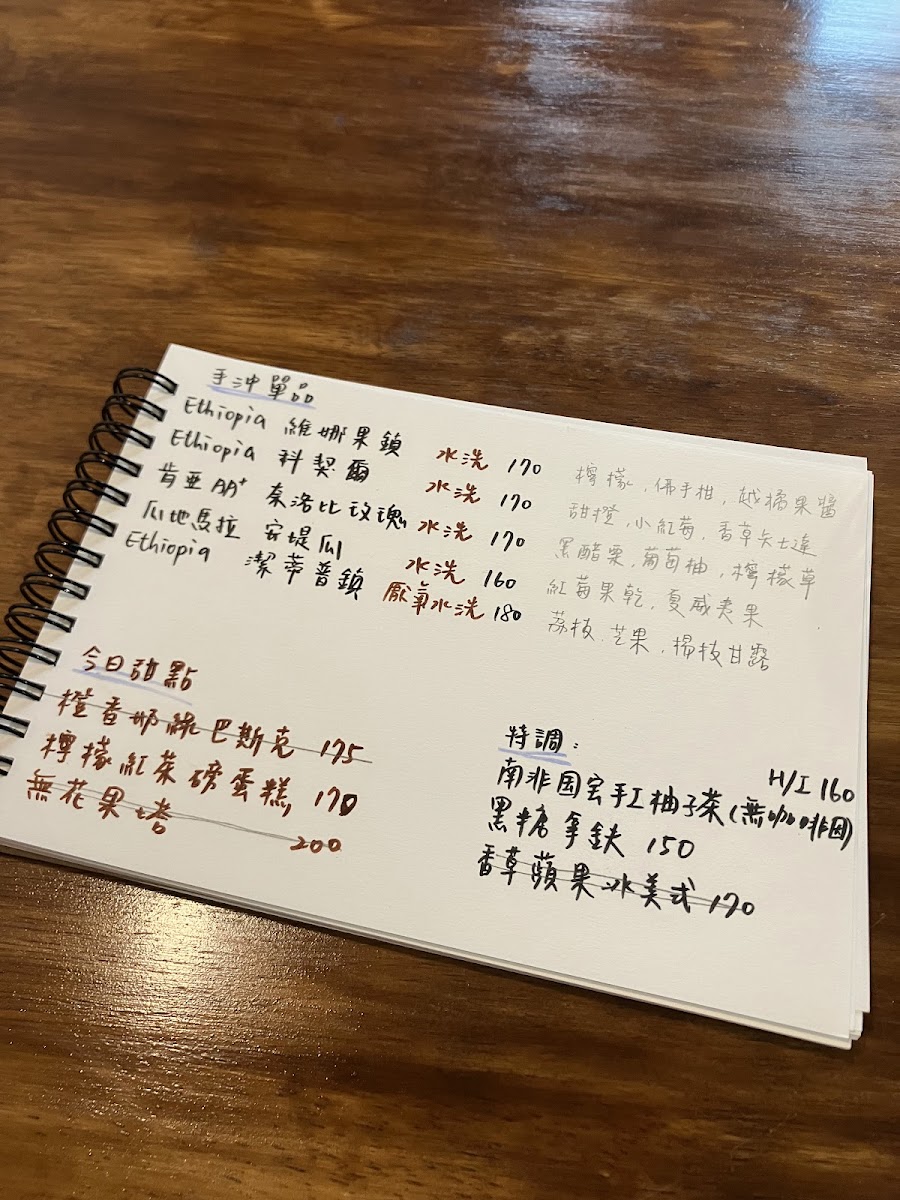 手沖單品
Ethiopia 維娜果鎮 水洗 170 檸檬，佛手柑，越橘果醬
Ethiopia 科契爾 水洗 170 甜橙，小紅莓，香草卡士達
肯亞 AA+ 奈洛比玫瑰 水洗 170 黑醋栗，葡萄柚，檸檬草
瓜地馬拉 安堤瓜 水洗 160 紅莓果乾，夏威夷果
Ethiopia 潔蒂普鎮 厭氧水洗 180 荔枝，芒果，楊枝甘露
今日甜點
橙香奶綠巴斯克 175
檸檬紅茶磅蛋糕 170
無花果塔 200
特調：
南非国宝手工柚子茶(無咖啡因) H/I 160
黑糖拿鉄 150
香草蘋果冰美式 170